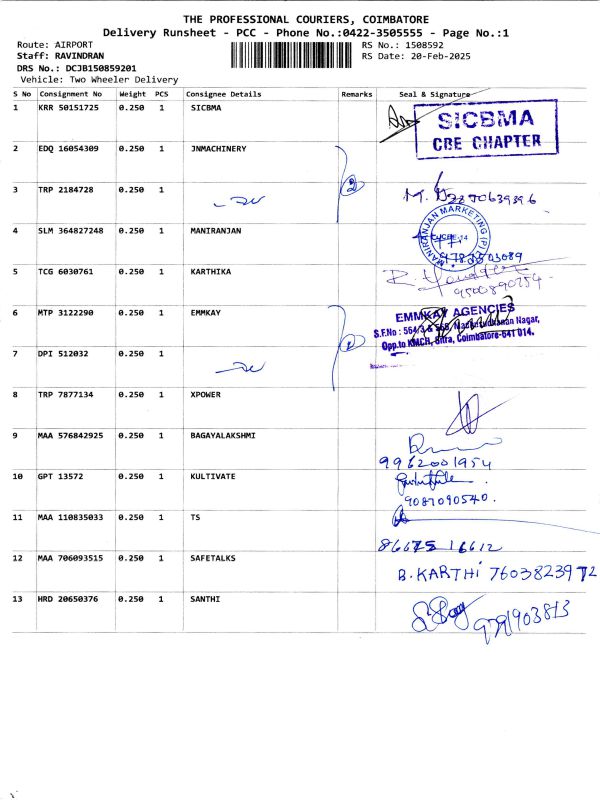 THE PROFESSIONAL COURIERS, COIMBATORE
Delivery Runsheet - PCC - Phone No.:0422-3505555 - Page No.:1
Route: AIRPORT RS No.: 1508592
Staff: RAVINDRAN RS Date: 20-Feb-2025
DRS No.: DCJB150859201
Vehicle: Two Wheeler Delivery
S No Consignment No Weight PCS Consignee Details Remarks Seal & Signature
1 KRR 50151725 0.250 1 SICBMA
SICBMA
CBE CHAPTER
2 EDQ 16054309 0.250 1 JNMACHINERY
2
3 TRP 2184728 0.250 1
4 SLM 364827248 0.250 1 MANIRANJAN
MANIRANJAN MARKETING (P) LTD
5 TCG 6030761 0.250 1 KARTHIKA
9500890254
6 MTP 3122290 0.250 1 EMMKAY
EMMKAY AGENCIES
Opp.to KMCH, Sitra, Coimbatore-641 014.
7 DPI 512032 0.250 1
8 TRP 7877134 0.250 1 XPOWER
9 MAA 576842925 0.250 1 BAGAYALAKSHMI
9962001954
10 GPT 13572 0.250 1 KULTIVATE
9087090540.
11 MAA 110835033 0.250 1 TS
86675 16612
12 MAA 706093515 0.250 1 SAFETALKS
B.KARTHI 7603823972
13 HRD 20650376 0.250 1 SANTHI
9791903813